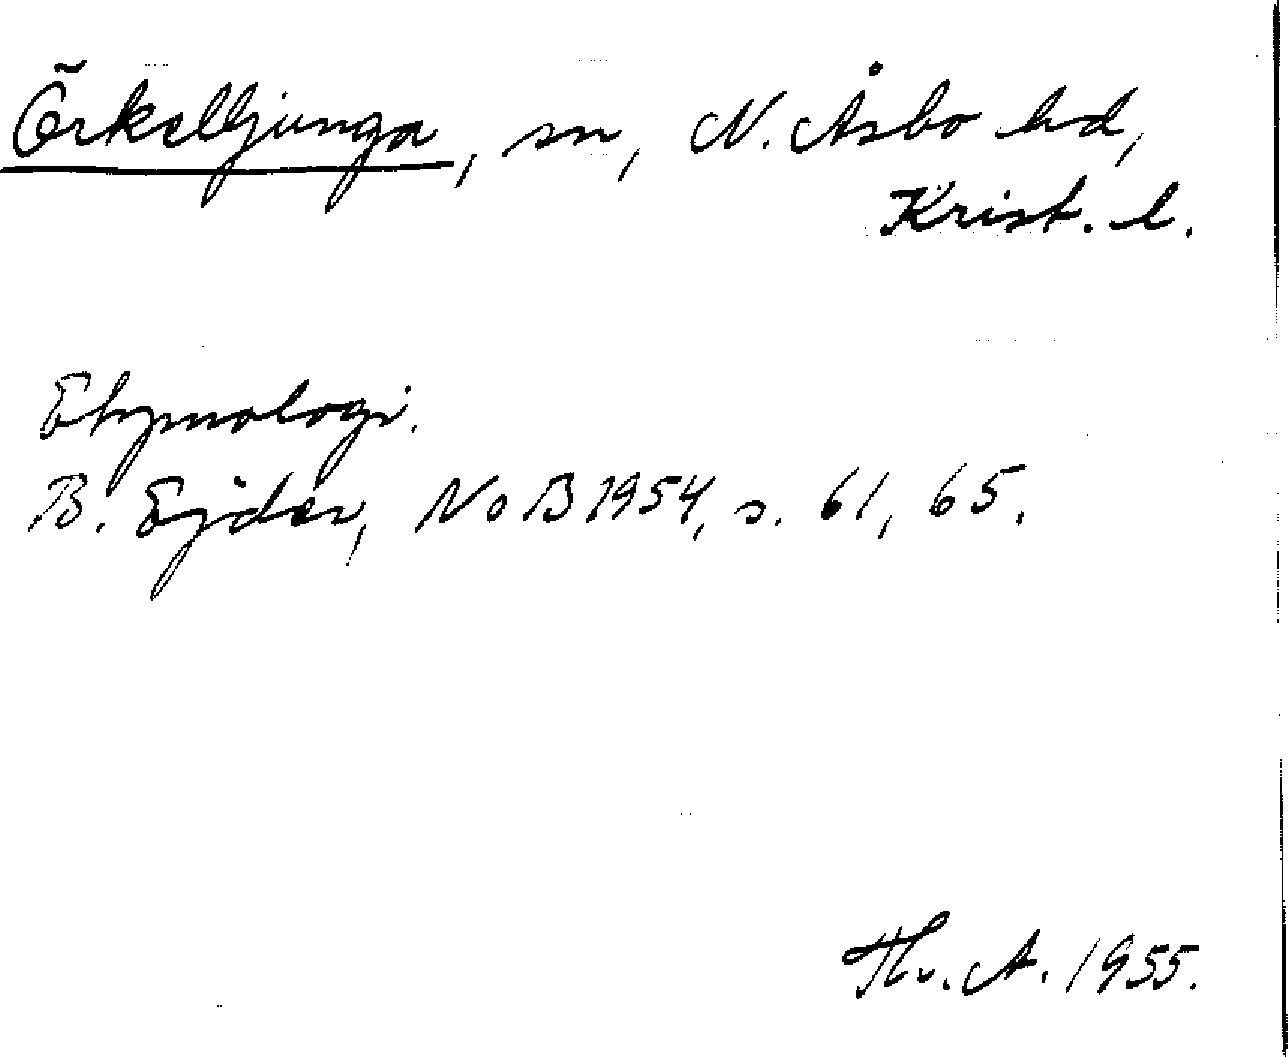 Örkelljunga, sn, N. Åsbo hd,
Krist. l.
Etymologi.
B. Ejder, NoB 1954, s. 61, 65.
Th. A. 1955.